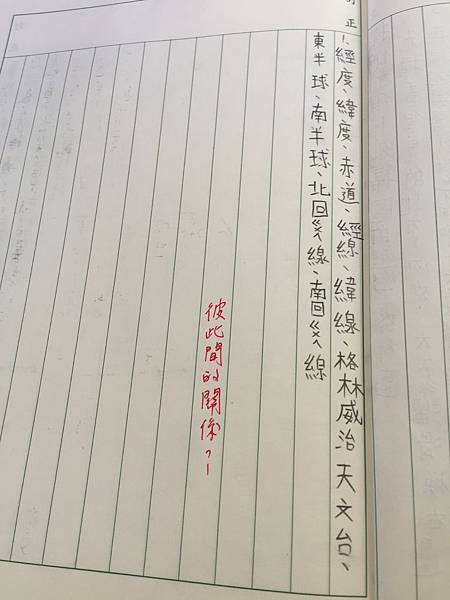 訂正
1.經度、緯度、赤道、經線、緯線、格林威治天文台、
東半球、南半球、北回ㄍㄟ線、南回ㄍㄟ線
彼此間的關係？